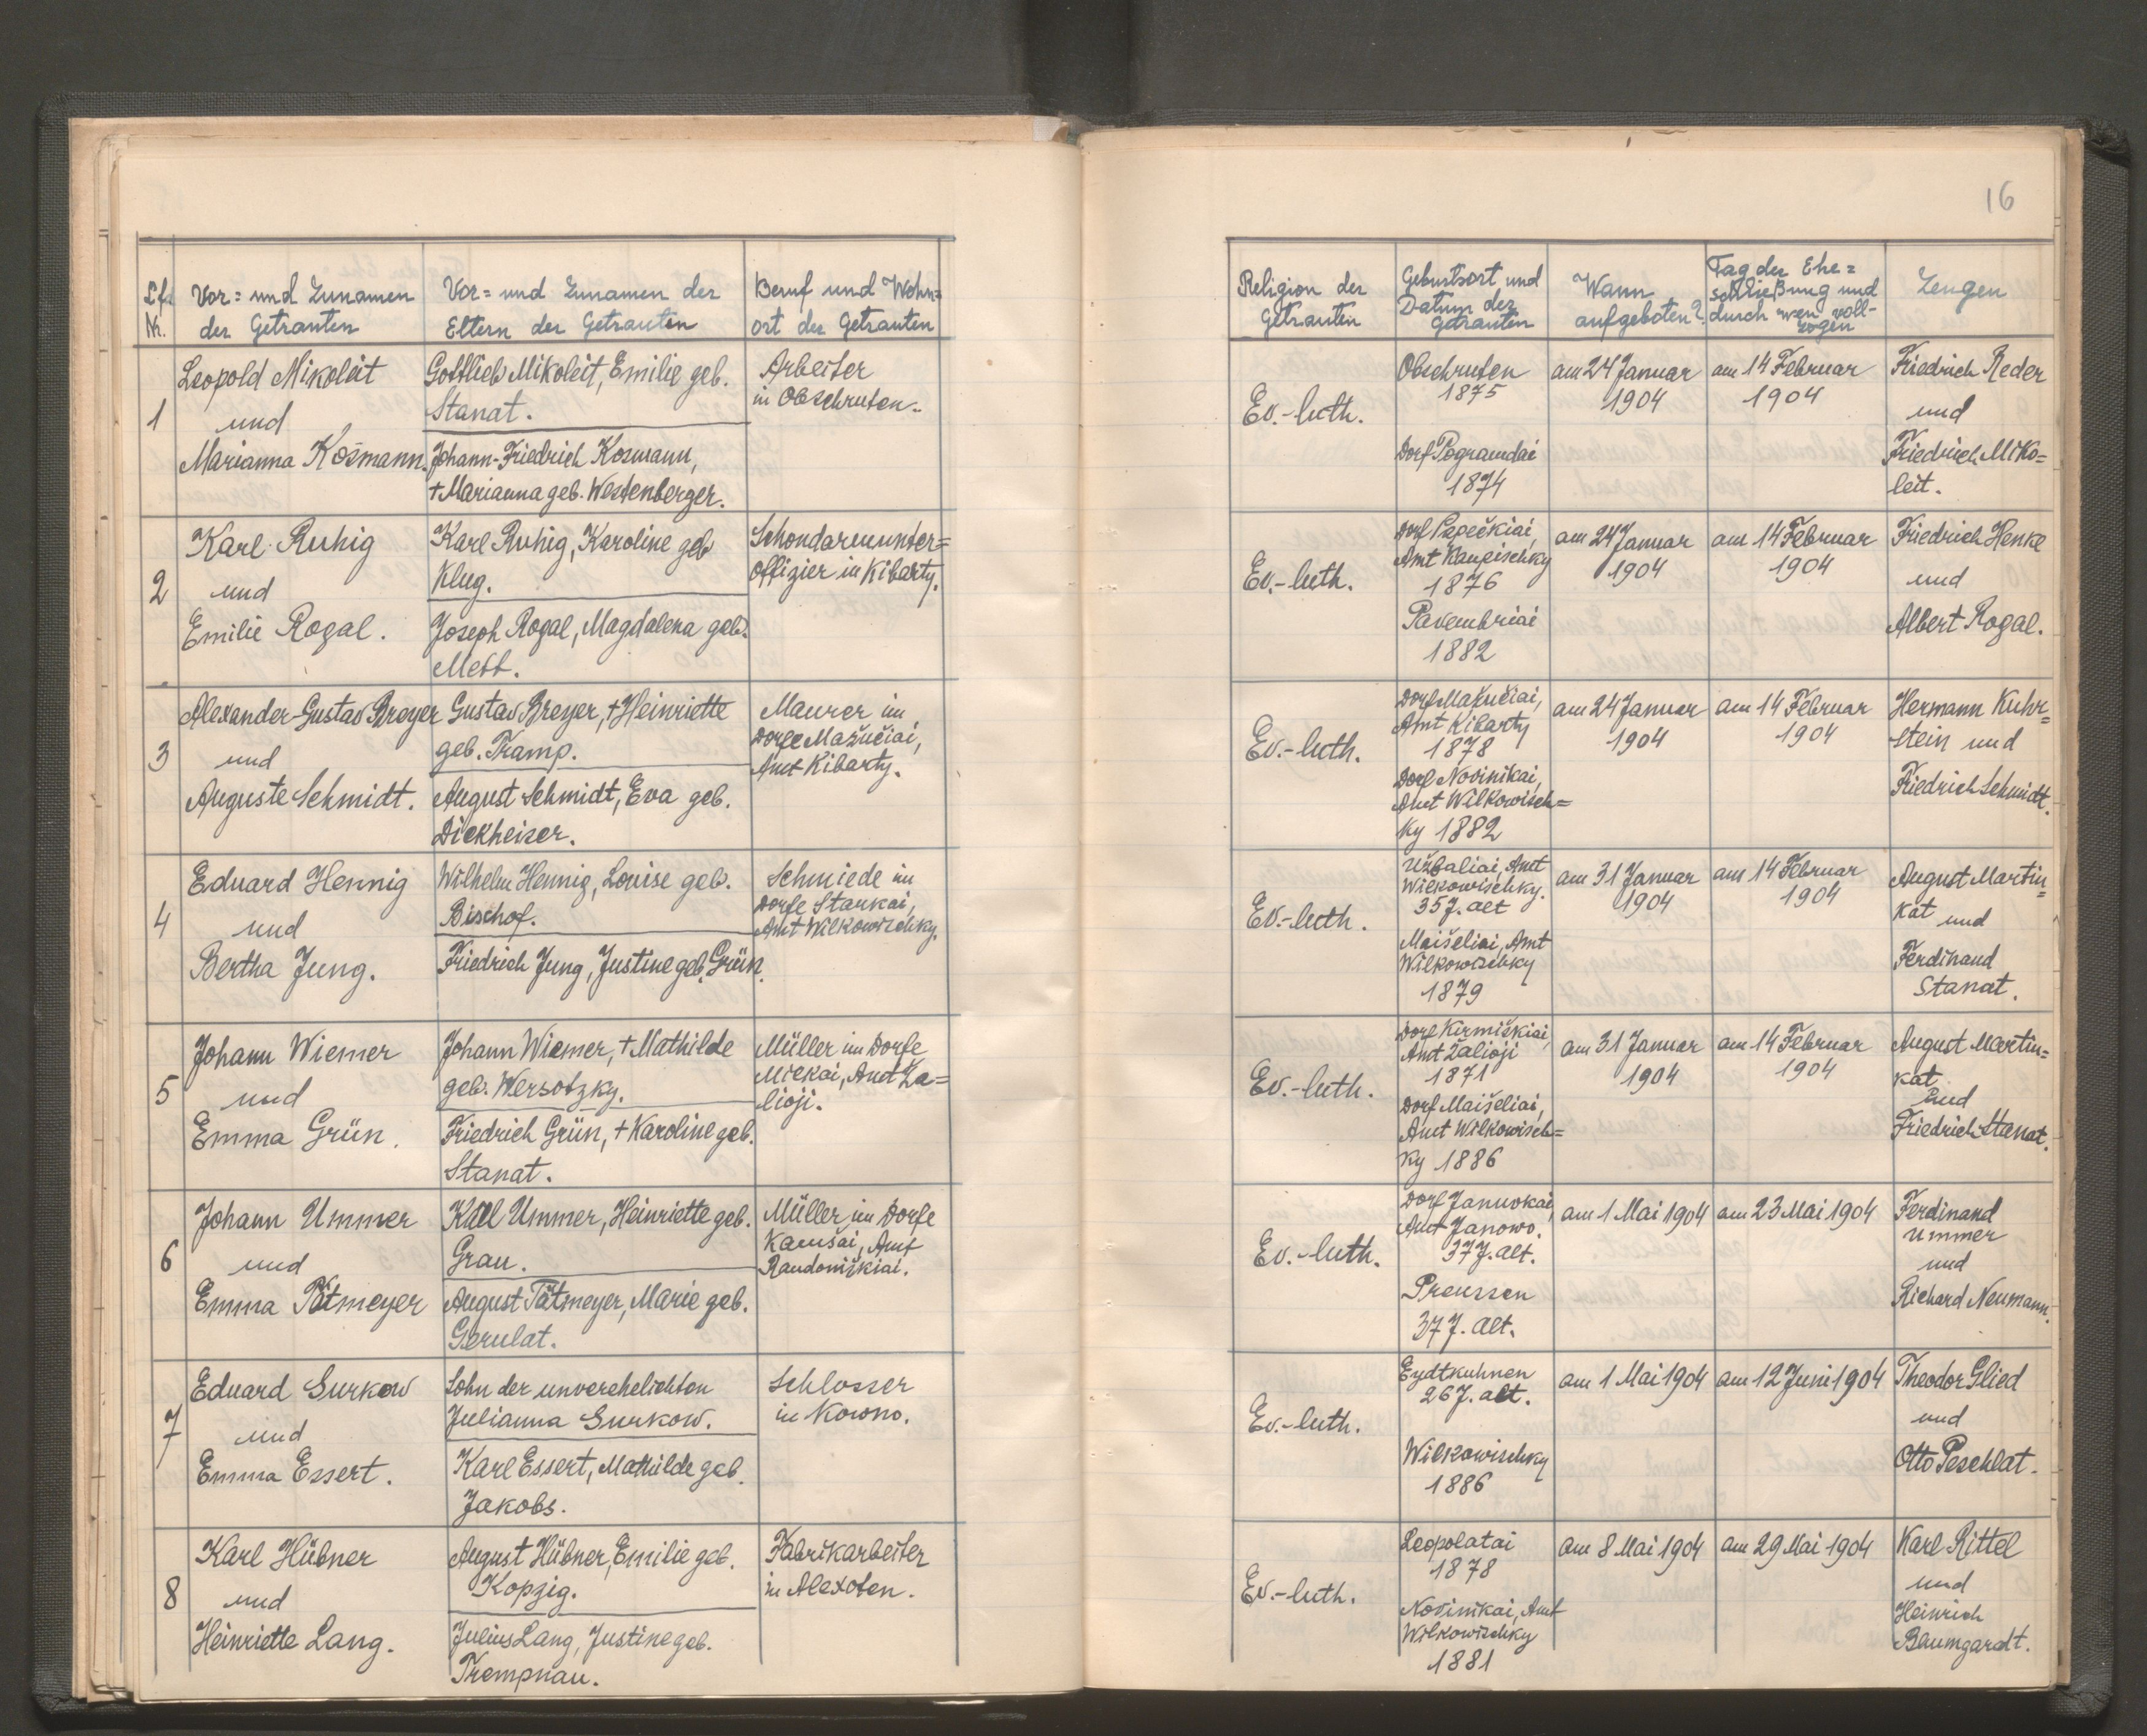 16
Lfd. Nr.
Vor= und Zunamen
der Getrauten
Vor= und Zunamen der
Eltern der Getrauten
Beruf und Wohn=
ort der Getrauten
Religion der
Getrauten
Geburtsort und
Datum der
Getrauten
Wann
aufgeboten?
Tag der Ehe=
schließung und
durch wen voll-
zogen
Zeugen
1
Leopold Mikoleit
und
Marianna Kosmann.
Gottlieb Mikoleit, Emilie geb.
Stanat.
Johann-Friedrich Kosmann,
+Marianna geb. Westenberger.
Arbeiter
in Obschruten.
Ev.-luth.
Obschruten
1875
Dorf Pogramdai
1874
am 24 Januar
1904
am 14 Februar
1904
Friedrich Reder
und
Friedrich Miko=
leit.
2
Karl Ruhig
und
Emilie Rogal.
Karl Ruhig, Karoline geb
Klug.
Joseph Rogal, Magdalena geb.
Mett.
Schondarmunter=
offizier in Kibarty.
Ev.-luth.
Dorf Papečkiai,
Amt Kaupischky
1876
Pavembriai
1882
am 24 Januar
1904
am 14 Februar
1904
Friedrich Henke
und
Albert Rogal.
3
Alexander Gustav Breyer
und
Auguste Schmidt.
Gustav Breyer, +Heinriette
geb. Tramp.
August Schmidt, Eva geb.
Dickheiser.
Maurer im
Dorfe Mažučiai,
Amt Kibarty.
Ev.-luth.
Dorf Mažučiai,
Amt Kibarty
1878
Dorf Novinikai,
Amt Wilkowisch=
ky 1882
am 24 Januar
1904
am 14 Februar
1904
Hermann Kuhr=
stein und
Friedrich Schmidt.
4
Eduard Hennig
und
Bertha Jung.
Wilhelm Hennig, Louise geb.
Bischof.
Friedrich Jung, Justine geb. Grün.
Schmiede im
Dorfe Stankai,
Amt Wilkowischky.
Ev.-luth.
Užbaliai, Amt
Wilkowischky.
35 J. alt
Maišeliai, Amt
Wilkowischky
1879
am 31 Januar
1904
am 14 Februar
1904
August Martin=
kat und
Ferdinand
Stanat.
5
Johann Wiemer
und
Emma Grün.
Johann Wiemer, +Mathilde
geb. Wersotzky.
Friedrich Grün, +Karoline geb.
Stanat.
Müller im Dorfe
Milkai, Amt Za=
lioji.
Ev.-luth.
Dorf Kirmiškiai,
Amt Žalioji
1871
Dorf Maišeliai,
Amt Wilkowisch=
ky 1886
am 31 Januar
1904
am 14 Februar
1904
August Martin=
kat
und
Friedrich Stanat.
6
Johann Ummer
und
Emma Tätmeyer
Karl Ummer, Heinriette geb.
Grau.
August Tätmeyer, Marie geb.
Gerulat.
Müller im Dorfe
Kamšai, Amt
Raudoniškiai.
Ev.-luth.
Dorf Janukai,
Amt Janowo.
37 J. alt.
Preussen
37 J. alt.
am 1 Mai 1904
am 23 Mai 1904
Ferdinand
Ummer
und
Richard Neumann.
7
Eduard Gurkow
und
Emma Essert.
Sohn der unverehelichten
Julianna Gurkow.
Karl Essert, Mathilde geb.
Jakobs.
Schlosser
in Kowno.
Ev.-luth.
Eydtkuhnen
26 J. alt.
Wilkowischky
1886
am 1 Mai 1904
am 12 Juni 1904
Theodor Glied
und
Otto Peschlat.
8
Karl Hübner
und
Heinriette Lang.
August Hübner, Emilie geb.
Kopzig.
Julius Lang, Justine geb.
Trempnau.
Fabrikarbeiter
in Alexoten.
Ev.-luth.
Leopolatai
1878
Novinikai, Amt
Wilkowischky
1881
am 8 Mai 1904
am 29 Mai 1904
Karl Rittel
und
Heinrich
Baumgardt.